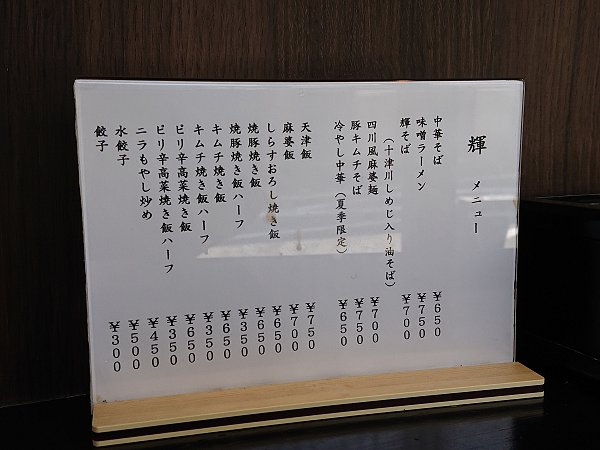 輝 メニュー
中華そば ¥650
味噌ラーメン ¥750
輝そば ¥700
(十津川しめじ入り油そば)
四川風麻婆麺 ¥700
豚キムチそば ¥750
冷やし中華(夏季限定) ¥650
天津飯 ¥750
麻婆飯 ¥700
しらすおろし焼き飯 ¥650
焼豚焼き飯 ¥650
焼豚焼き飯ハーフ ¥350
キムチ焼き飯 ¥650
キムチ焼き飯ハーフ ¥350
ピリ辛高菜焼き飯 ¥650
ピリ辛高菜焼き飯ハーフ ¥350
ニラもやし炒め ¥450
水餃子 ¥500
餃子 ¥300